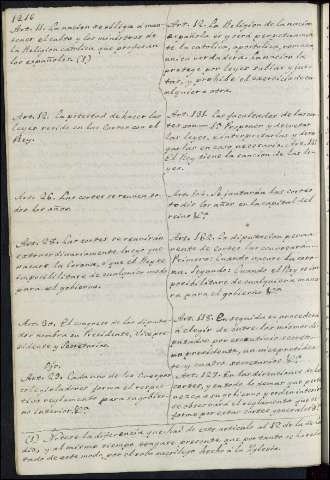 1216
Art. 11. La nacion se obliga a man-
tener el culto y los ministros de
la Religion catolica que profesan
los españoles. (1)
Art. 12. La Religion de la nacion
española es y será perpetuamen
te la catolica, apostolica, romana,
unica verdadera. La nacion la
protege por leyes sabias y jus-
tas, y prohibe el exercicio de cu-
alquiera otra.
Art. 12. La potestad de hacer las
leyes reside en las Cortes con el
Rey.
Art. 131. Las facultades de las cor
tes son 1ª Proponer y decretar
las leyes, e interpretarlas y dero
garlas en caso necesario. Art. 142
El Rey tiene la sancion de las le-
yes.
Art. 26. Las cortes se reunen to-
dos los años.
Art. 104. Se juntarán las cortes
todos los años en la capital del
reino &ª
Art. 28. Las cortes se reunirán
extraordinariamente luego que
vacare la Corona, o que el Rey se
imposibilitare de cualquier modo
para el gobierno.
Art. 162. La diputacion perma-
nente de cortes las convocara
Primero: Cuando vacare la coro-
na. Segundo: Cuando el Rey se im
posibilitare de cualquiera mane
ra para el gobierno &ª
Art. 30. El congreso de los diputa-
dos nombra su Presidente, Vicepre-
sidente y Secretarios.
Art. 118. En seguida se procederá
a elegir de entre los mismos di
putados, por escrutinio secreto
un presidente, un vicepresiden-
te y cuatro secretarios. &ª
Art. 29. Cada uno de los Cuerpos
colegisladores forma el respec-
tivo reglamento para su gobier-
no interior. &ª
Art. 127. En las discusiones de las
cortes, y en todo lo demas que perte
nezca a su gobierno y orden interior
se observará el reglamento que se
forme por estas cortes generales &ª
(1) Notese la diferencia que hai de este articulo al 12 de la de
y al mismo tiempo tengase presente que por tanto se ha redac
tado de este modo, por el robo sacrilego hecho a la Iglesia.